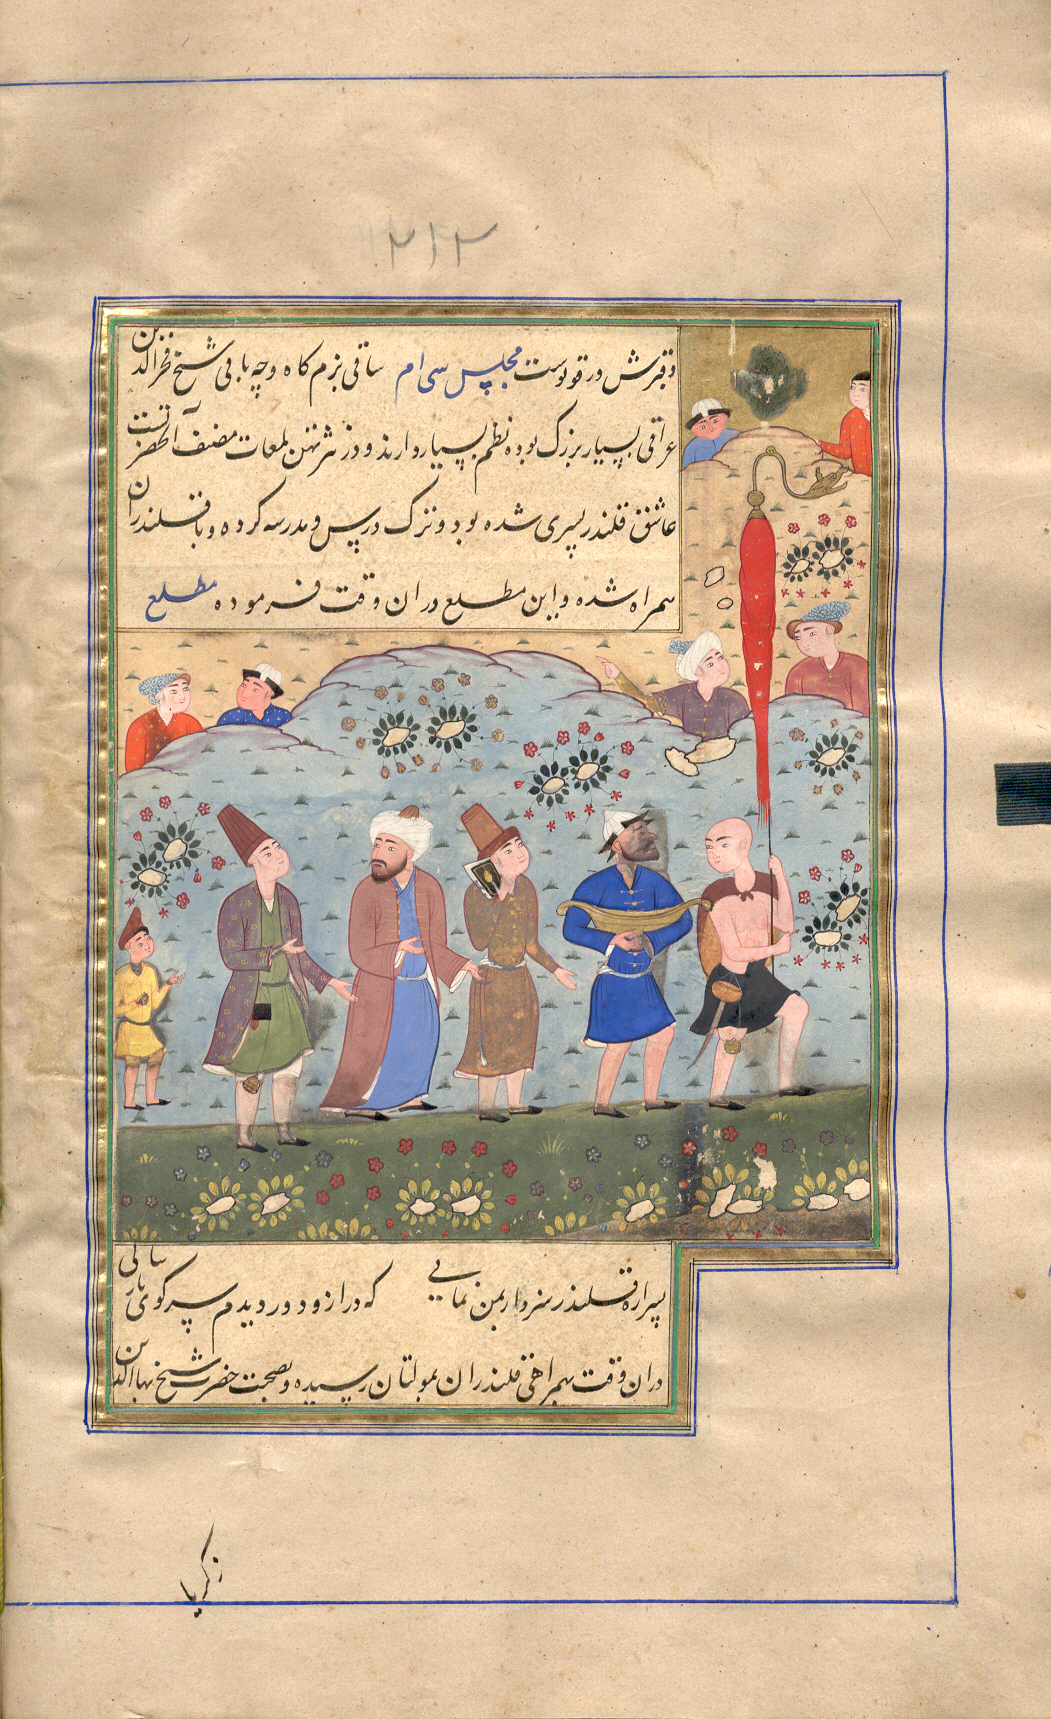 ۲۱۲
و قبرش در قونوست مجلس سی ام ساقی بزم کاه وچه باقی شیخ فخرالدین
عراقی بسیار بزرگ بوده نظم بسیار دارند و در نثر تهن لمعات مصنف آنحضرتست
عاشق قلندر پسری شده بود و ترک درس و مدرسه کرده و با قلندران
همراه شده و این مطلع در ان وقت فرموده مطلع
پسرا ره قلندر سزد ار بمن نمایی که دراز و دور دیدم سر کوی پارسائی
در ان وقت بهمراهی قلندران بمولتان رسیده و بصحبت حضرت شیخ بهاالدین
زکریا